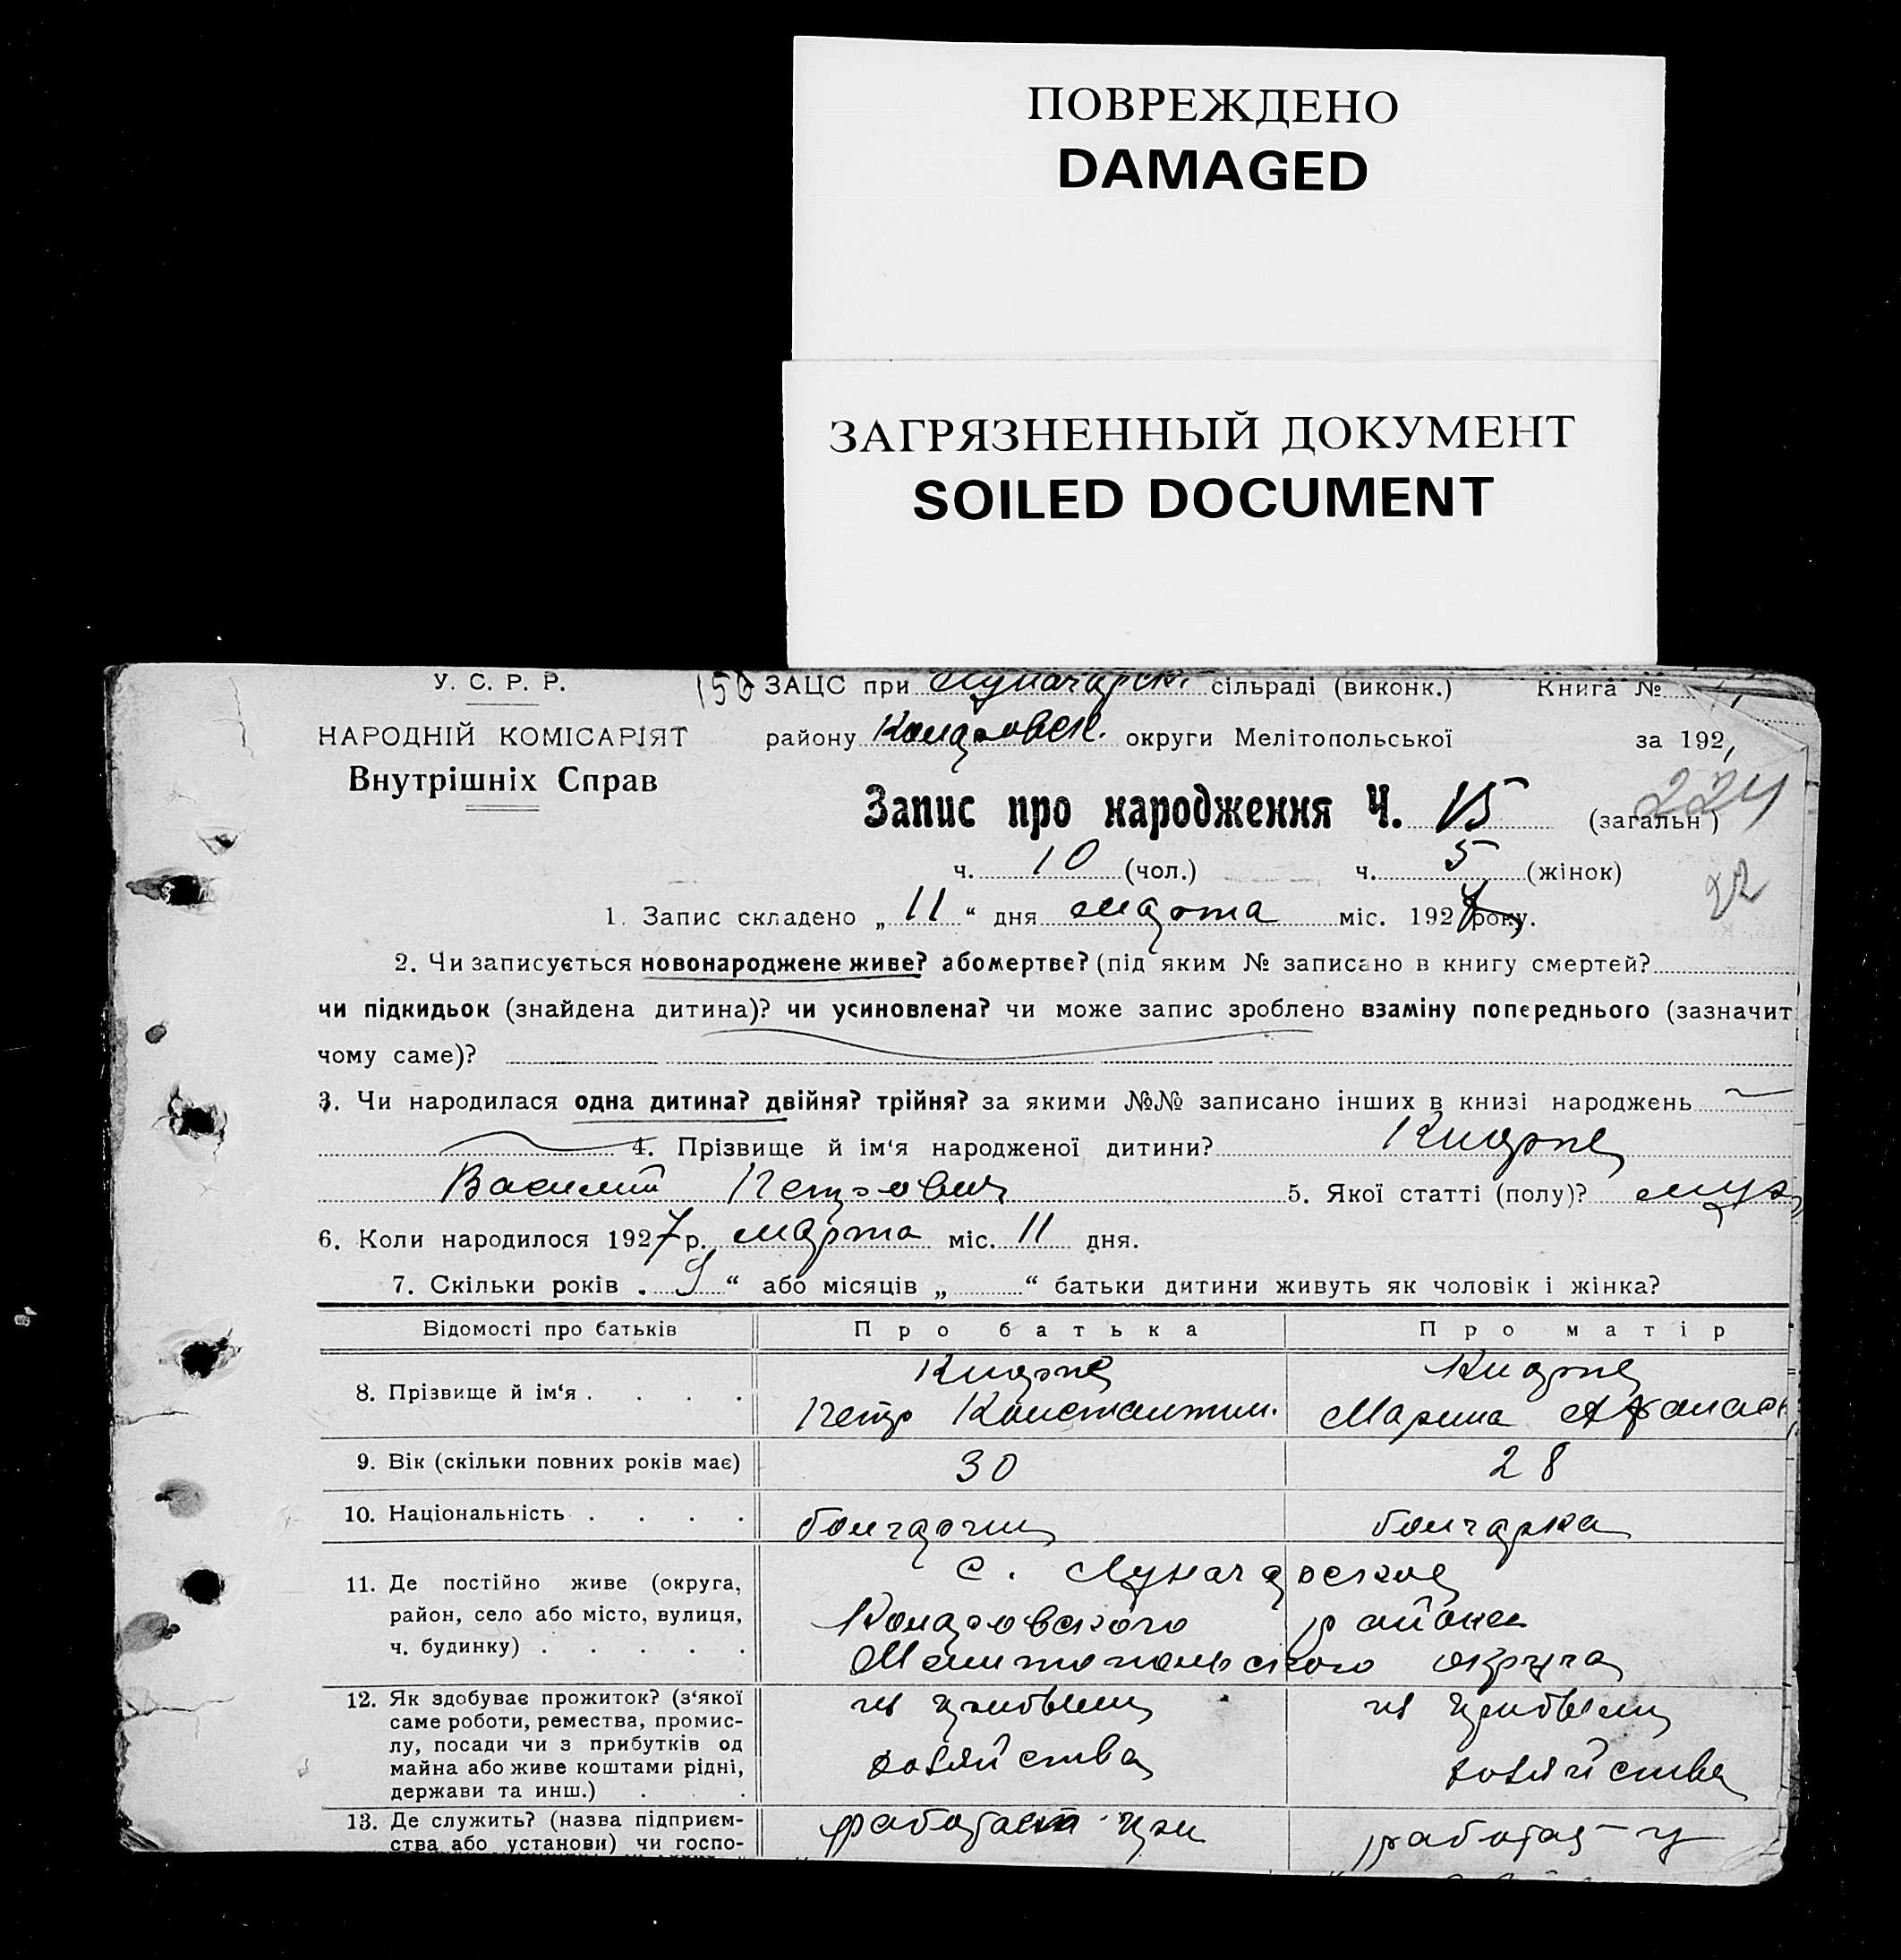 ПОВРЕЖДЕНО
DAMAGED
ЗАГРЯЗНЕННЫЙ ДОКУМЕНТ
SOILED DOCUMENT
У. С. Р. Р.
НАРОДНІЙ КОМІСАРІЯТ
Внутрішніх Справ
150 ЗАЦС при Луначарск. сільраді (виконк.) Книга №
району округи Мелітопольської за 192
224
Запис про народження Ч. 15 (загальн)
ч. 10 (чол.) ч. 5 (жінок)
22
1. Запис складено „ 11 “ дня марта міс. 1927 року.
2. Чи записується новонароджене живе? або мертве? (під яким № записано в книгу смертей?
чи підкидьок (знайдена дитина)? чи усиновлена? чи може запис зроблено взаміну попереднього (зазначит
чому саме)?
3. Чи народилася одна дитина? двійня? трійня? за якими №№ записано інших в книзі народжень
4. Прізвище й ім‘я народженої дитини?
Василий Петрович 5. Якої статті (полу)? муж
6. Коли народилося 1927 р. марта міс. 11 дня.
7. Скільки років „ 9 “ або місяців „ “ батьки дитини живуть як чоловік і жінка?
Відомості про батьків Про батька Про матір
8. Прізвище й ім‘я . . . .
Петр Константин. Марина Афанась
9. Вік (скільки повних років має) 30 28
10. Національність . . . . болгарин болгарка
11. Де постійно живе (округа, район, село або місто, вулиця, ч. будинку) . . . . .
с. Луначарское
района
Мелитопольского округа
12. Як здобуває прожиток? (з‘якої саме роботи, ремества, промислу, посади чи з прибутків од майна або живе коштами рідні, держави та инш.) . . .
из прибыли из прибыли
хозяйства хозяйства
13. Де служить? (назва підприєм-
ства або установи) чи госпо-
работает при